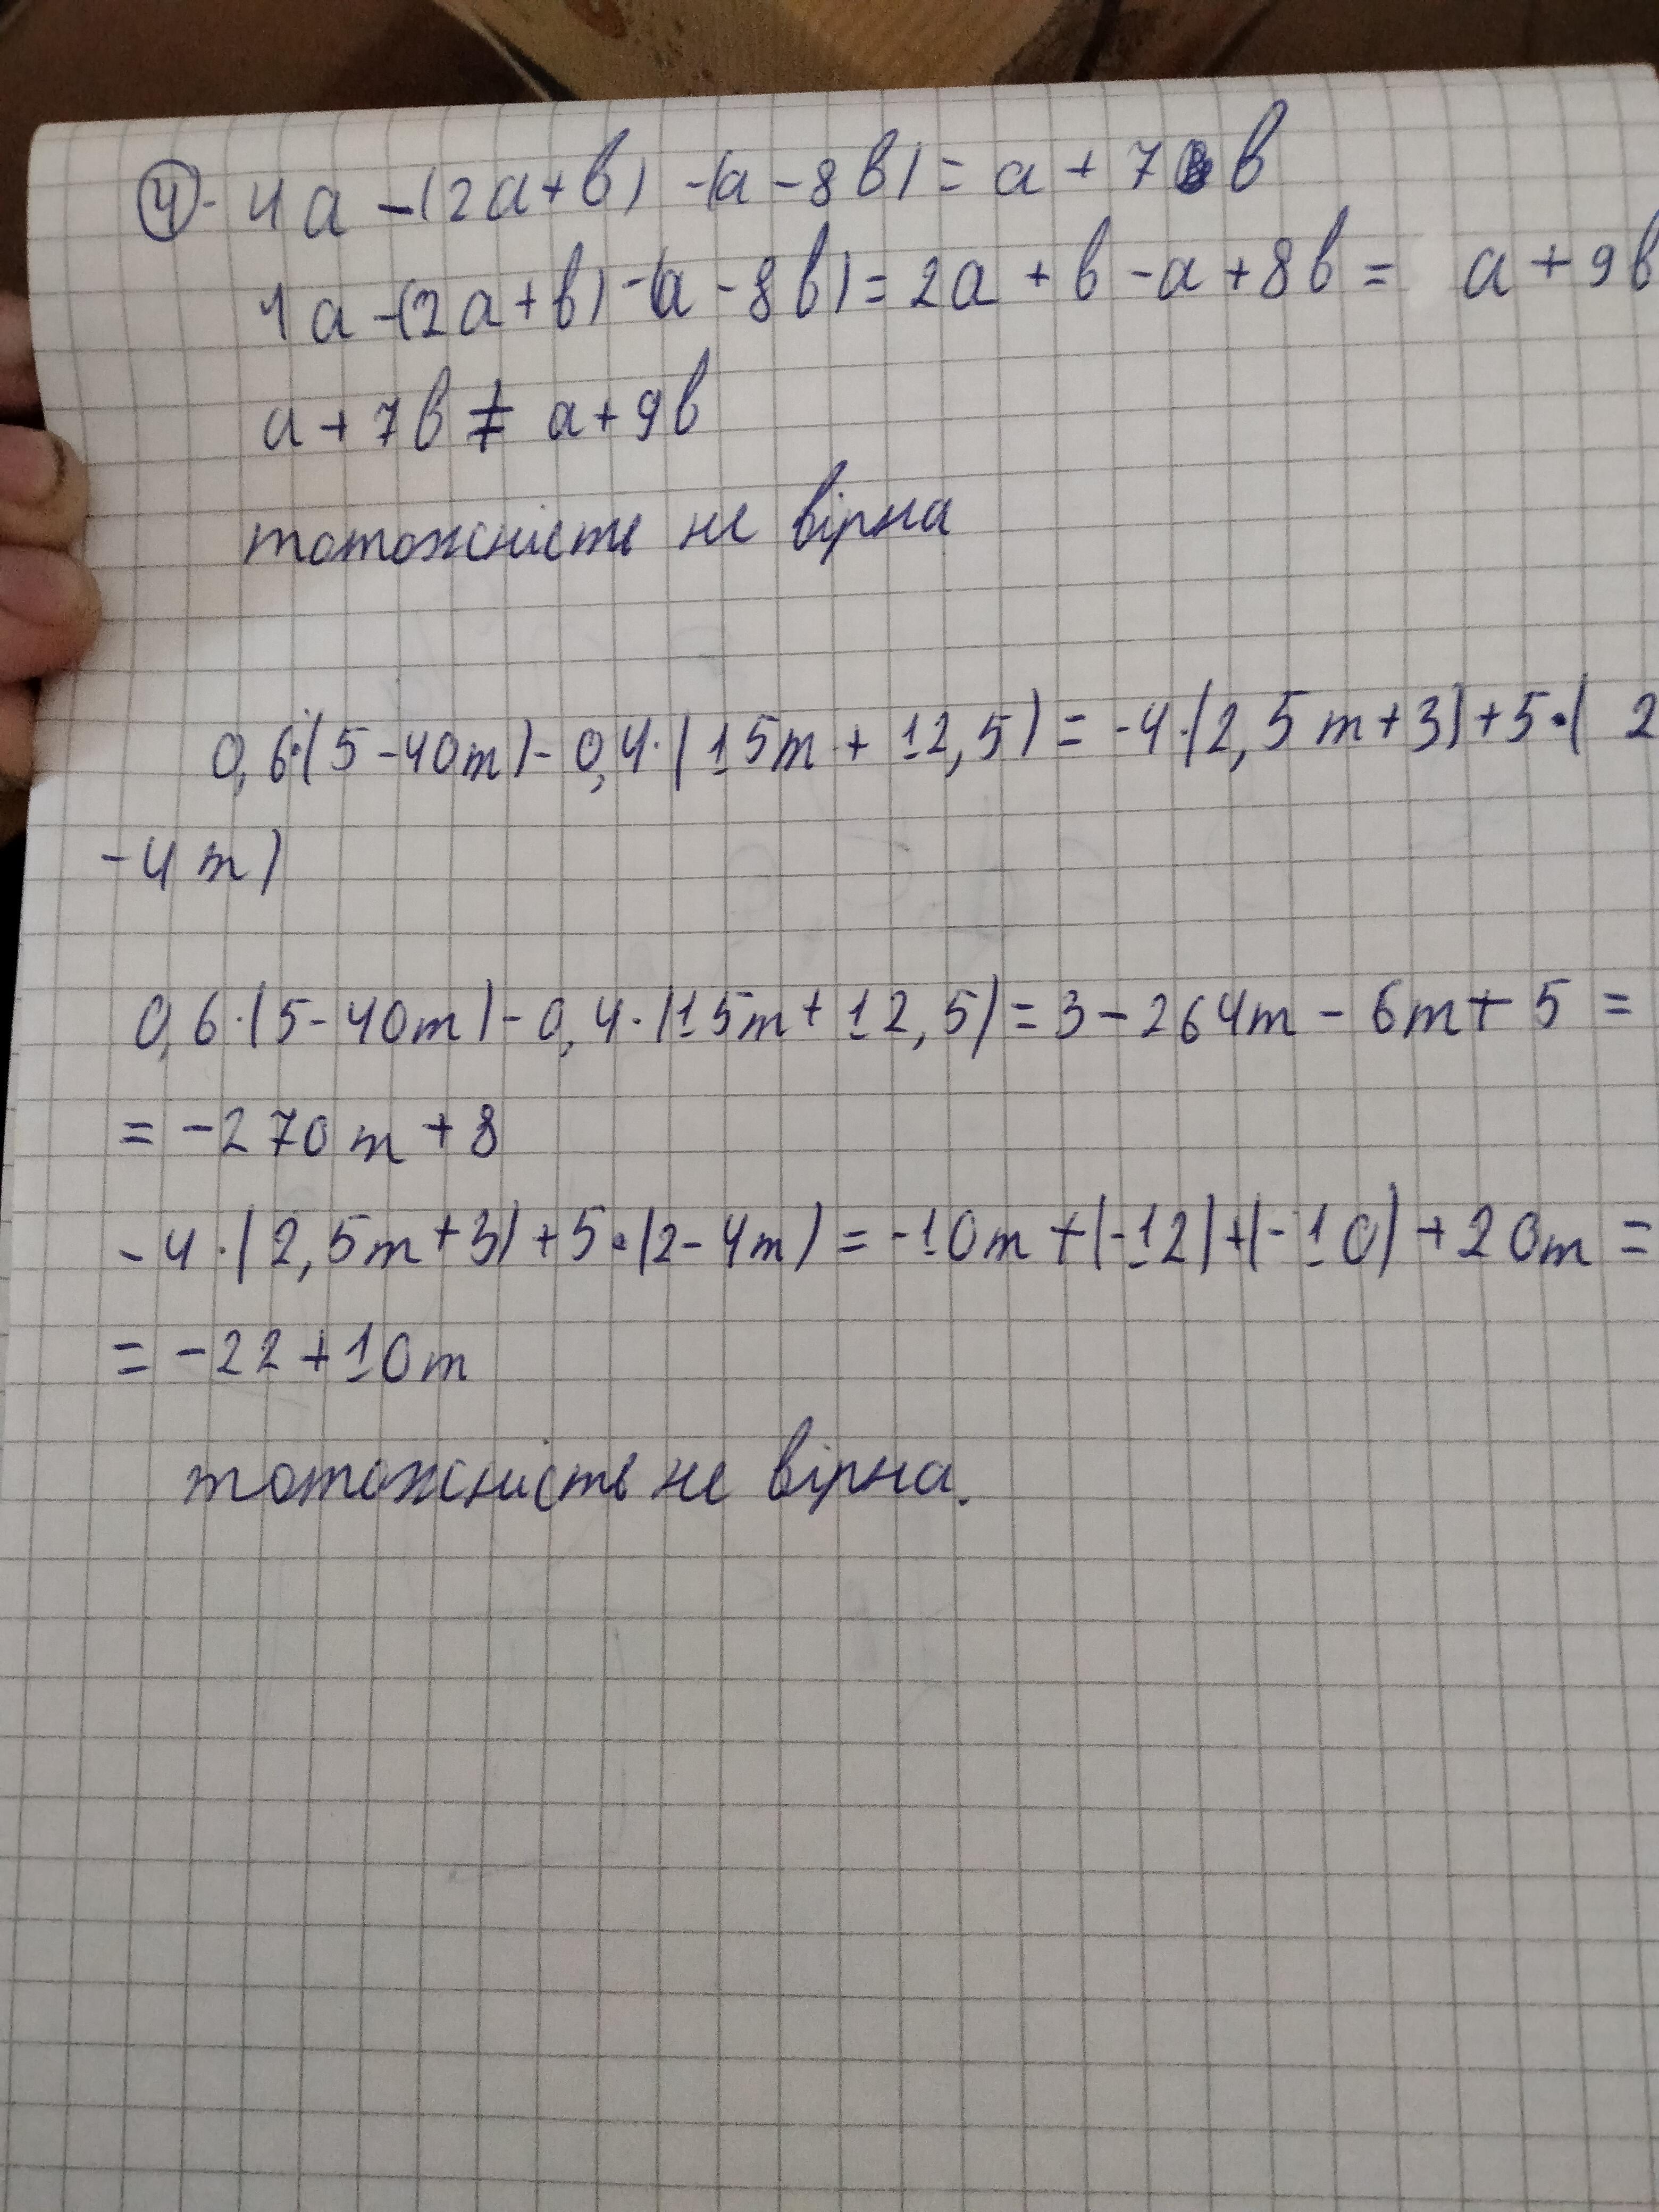 ④. 4a -(2a+b) -(a-8b) = a + 7 b
4a -(2a+b) -(a-8b) = 2a + b - a + 8b = a + 9b
a + 7b ≠ a + 9b
тотожність не вірна
0,6·(5-40m)-0,4·(15m + 12,5) = -4·(2,5m+3)+5·( 2
-4m)
0,6·(5-40m)-0,4·(15m+12,5)=3-264m-6m+5=
= -270m+8
-4·(2,5m+3)+5·(2-4m)=-10m+(-12)+(-10)+20m=
= -22+10m
тотожність не вірна.